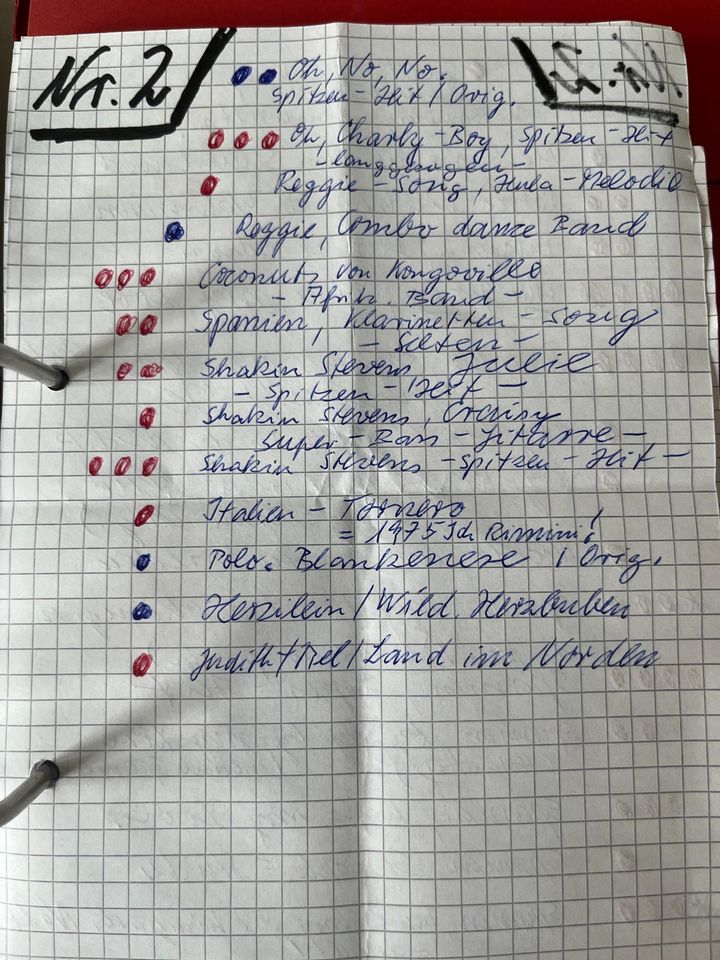 Nr. 2
Oh, No, No.
Spitzen-Hit / Orig.
Oh, Charly-Boy, Spitzen-Hit
-langgezogen-
Reggie-Song, Hula-Melodie
Reggie, Combo dance Band
Coconuts von Kongoville
- Afrik. Band -
Spanien, Klarinetten-Song
- Selten -
Shakin Stevens, Julie
- Spitzen-Hit -
Shakin Stevens,
Super-Bass-Gitarre -
Shakin Stevens - Spitzen-Hit -
Italien - Tornero
= 1975 Ich Rimini!
Polo. Blankenese / Orig.
Herzilein / Wild. Herzbuben
Judith + Mel / Land im Norden